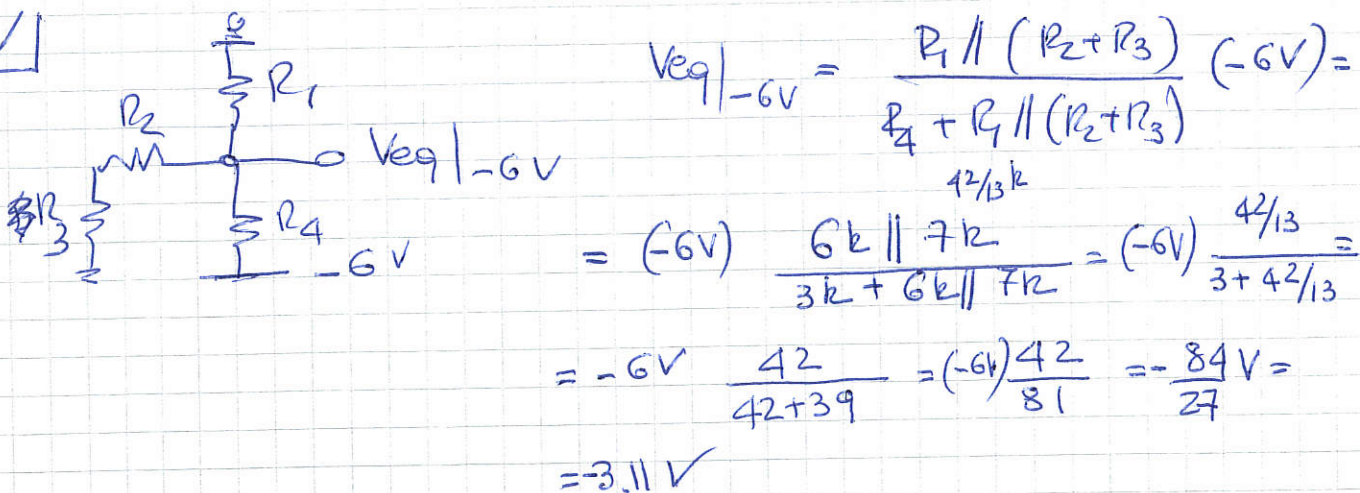 R1
R2
Veq|-6V
R3
R4
-6V
Veq|-6V = R1 // (R2+R3) / R4 + R1 // (R2+R3) (-6V) =
42/13 k
= (-6V) 6k || 7k / 3k + 6k || 7k = (-6V) 42/13 / 3 + 42/13 =
= -6V 42 / 42+39 = (-6V) 42 / 81 = - 84 / 27 V =
= -3.11 V